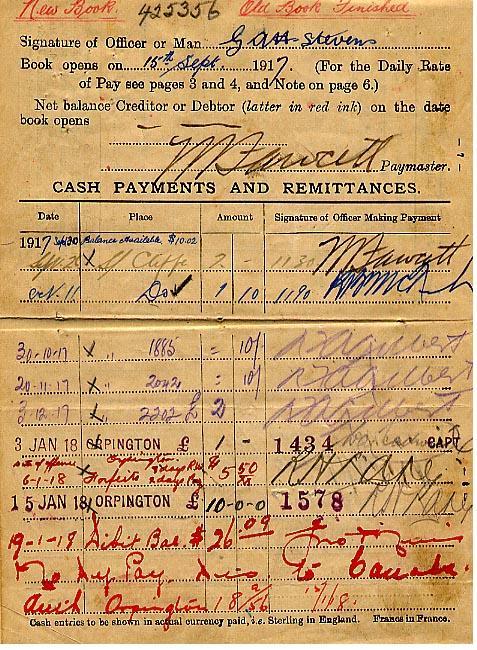 New Book. 425356 Old Book Finished
Signature of Officer or Man G A H Stevens
Book opens on 15th Sept. 1917. (For the Daily Rate
of Pay see pages 3 and 4, and Note on page 6.)
Net balance Creditor or Debtor (latter in red ink) on the date
book opens
M Fawcett Paymaster.
CASH PAYMENTS AND REMITTANCES.
Date Place Amount Signature of Officer Making Payment
1917 Balance Available $10.02
2 - 1130 M Fawcett
Oct. 11 Do 1 10 1190
30-10-17 " 1885 = 10/
20-11-17 " 2042 = 10/
3-12-17 " 2202 £ 2
3 JAN 18 ORPINGTON £ 1 - 1434 CAPT
Orpington $ 5 50
6-1-18 Forfeits 2 days Pay
15 JAN 18 ORPINGTON £ 10-0-0 1578
19-1-18 Debit Bal. $ 26 09
No Dep Pay. to Canada.
Orpington 18
Cash entries to be shown in actual currency paid, i.e. Sterling in England. Francs in France.